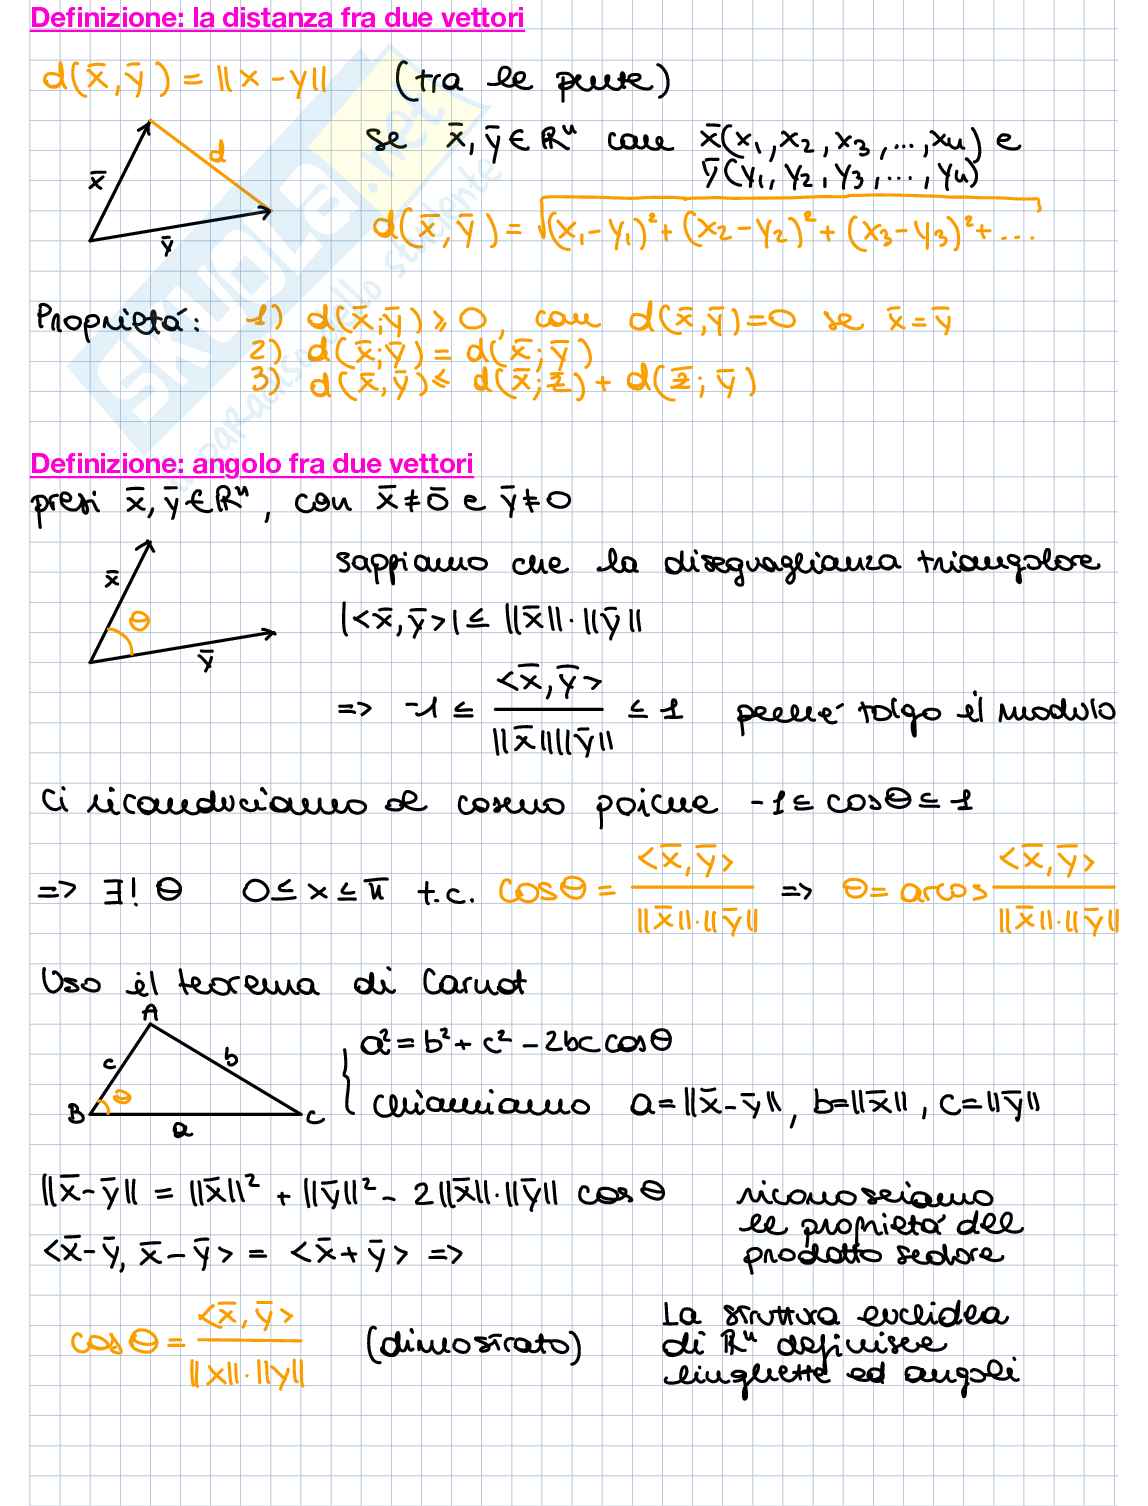 Definizione: la distanza fra due vettori
d(x̄,ȳ) = ||x-y|| (tra le punte)
se x̄,ȳ ∈ ℝⁿ con x̄(x₁,x₂,x₃,...,xₙ) e
ȳ(y₁,y₂,y₃,...,yₙ)
x̄
d
ȳ
d(x̄,ȳ) = √(x₁-y₁)²+(x₂-y₂)²+(x₃-y₃)²+...
Proprietá: 1) d(x̄;ȳ) ≥ 0, con d(x̄,ȳ)=0 se x̄=ȳ
2) d(x̄;ȳ) = d(x̄;ȳ)
3) d(x̄,ȳ) ≤ d(x̄;z̄) + d(z̄;ȳ)
SKUOLA.net
Definizione: angolo fra due vettori
presi x̄,ȳ ∈ ℝⁿ, con x̄≠0̄ e ȳ≠0
x̄
θ
ȳ
sappiamo che la diseguaglianza triangolare
|<x̄,ȳ>| ≤ ||x̄||·||ȳ||
=> -1 ≤ <x̄,ȳ> / ||x̄||||ȳ|| ≤ 1 perché tolgo il modulo
Ci riconduciamo al coseno poiche -1 ≤ cosθ ≤ 1
=> ∃! θ 0 ≤ x ≤ π t.c. cosθ = <x̄,ȳ> / ||x̄||·||ȳ|| => θ = arcos <x̄,ȳ> / ||x̄||·||ȳ||
Uso il teorema di Carnot
A
c
b
B
θ
a
C
a² = b² + c² - 2bc cosθ
chiamiamo a=||x̄-ȳ||, b=||x̄||, c=||ȳ||
||x̄-ȳ|| = ||x̄||² + ||ȳ||² - 2||x̄||·||ȳ|| cosθ riconosciamo
le proprietá del
<x̄-ȳ, x̄-ȳ> = <x̄+ȳ> => prodotto scalare
cosθ = <x̄,ȳ> / ||x||·||y|| (dimostrato)
La struttura euclidea
di ℝⁿ definisce
lunghette ed angoli